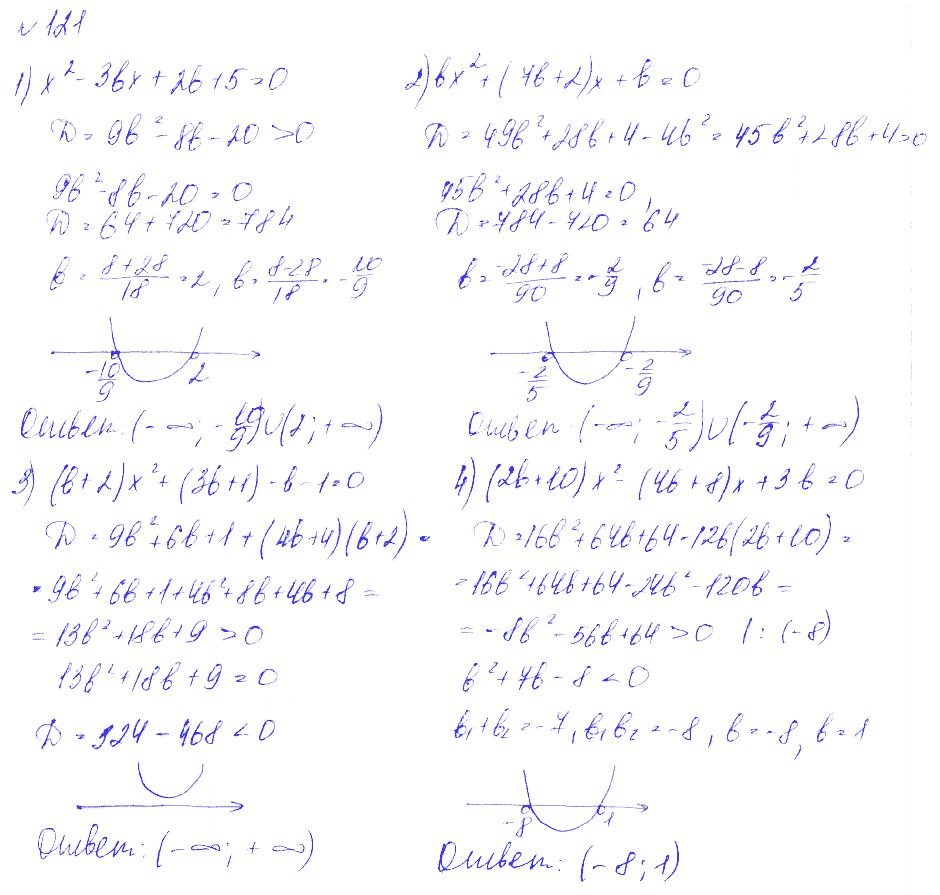 №121
1) x² - 3bx + 2b + 5 = 0
D = 9b² - 8b - 20 > 0
9b² - 8b - 20 = 0
D = 64 + 720 = 784
b = (8+28)/18 = 2, b = (8-28)/18 = -10/9
-10/9 2
Ответ: (-∞; -10/9)∪(2; +∞)
2) bx² + (7b+2)x + b = 0
D = 49b² + 28b + 4 - 4b² = 45b² + 28b + 4 = 0
45b² + 28b + 4 = 0,
D = 784 - 720 = 64
b = (-28+8)/90 = -2/9, b = (-28-8)/90 = -2/5
-2/5 -2/9
Ответ (-∞; -2/5)∪(-2/9; +∞)
3) (b+2)x² + (3b+1) - b - 1 = 0
D = 9b² + 6b + 1 + (4b+4)(b+2) =
= 9b² + 6b + 1 + 4b² + 8b + 4b + 8 =
= 13b² + 18b + 9 > 0
13b² + 18b + 9 = 0
D = 324 - 468 < 0
Ответ: (-∞; +∞)
4) (2b+10)x² - (4b+8)x + 3b = 0
D = 16b² + 64b + 64 - 12b(2b+10) =
= 16b² + 64b + 64 - 24b² - 120b =
= -8b² - 56b + 64 > 0 |: (-8)
b² + 7b - 8 < 0
b₁ + b₂ = -7, b₁b₂ = -8, b = -8, b = 1
-8 1
Ответ: (-8; 1)